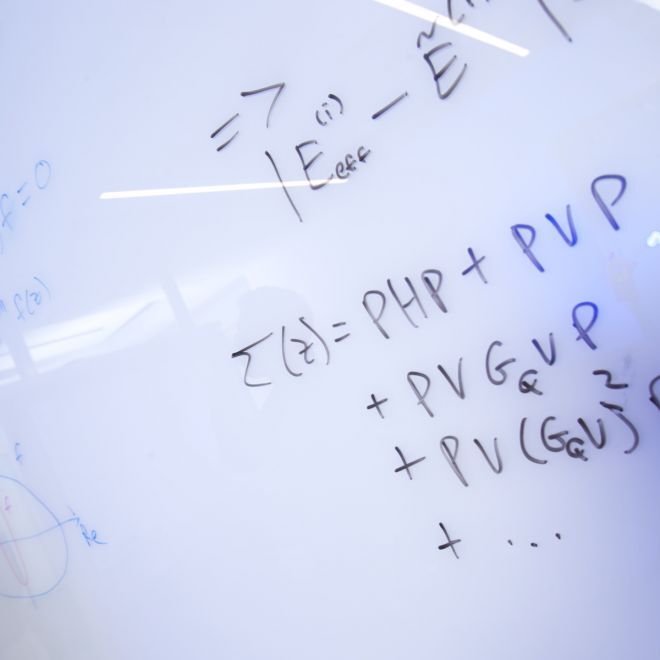 =7
|E_eff^(i) - Ẽ
f=0
f(z)
Σ(z)= PHP + PVP
+ PVG_QVP
+ PV(G_QV)^2
+ ...
Re